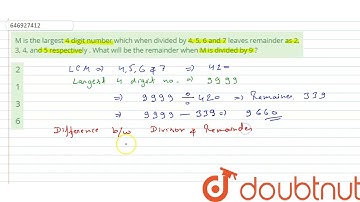 646927412
M is the largest 4 digit number which when divided by 4, 5, 6 and 7 leaves remainder as 2,
3, 4, and 5 respectively . What will be the remainder when M is divided by 9 ?
2
1
3
6
LCM ⇒ 4,5,6 & 7 ⇒ 420
Largest 4 digit no. ⇒ 9999
⇒ 9999 ÷ 420 ⇒ Remainder 339
⇒ 9999 - 339 ⇒ 9660
Difference b/w Divisor & Remainder
doubtnut